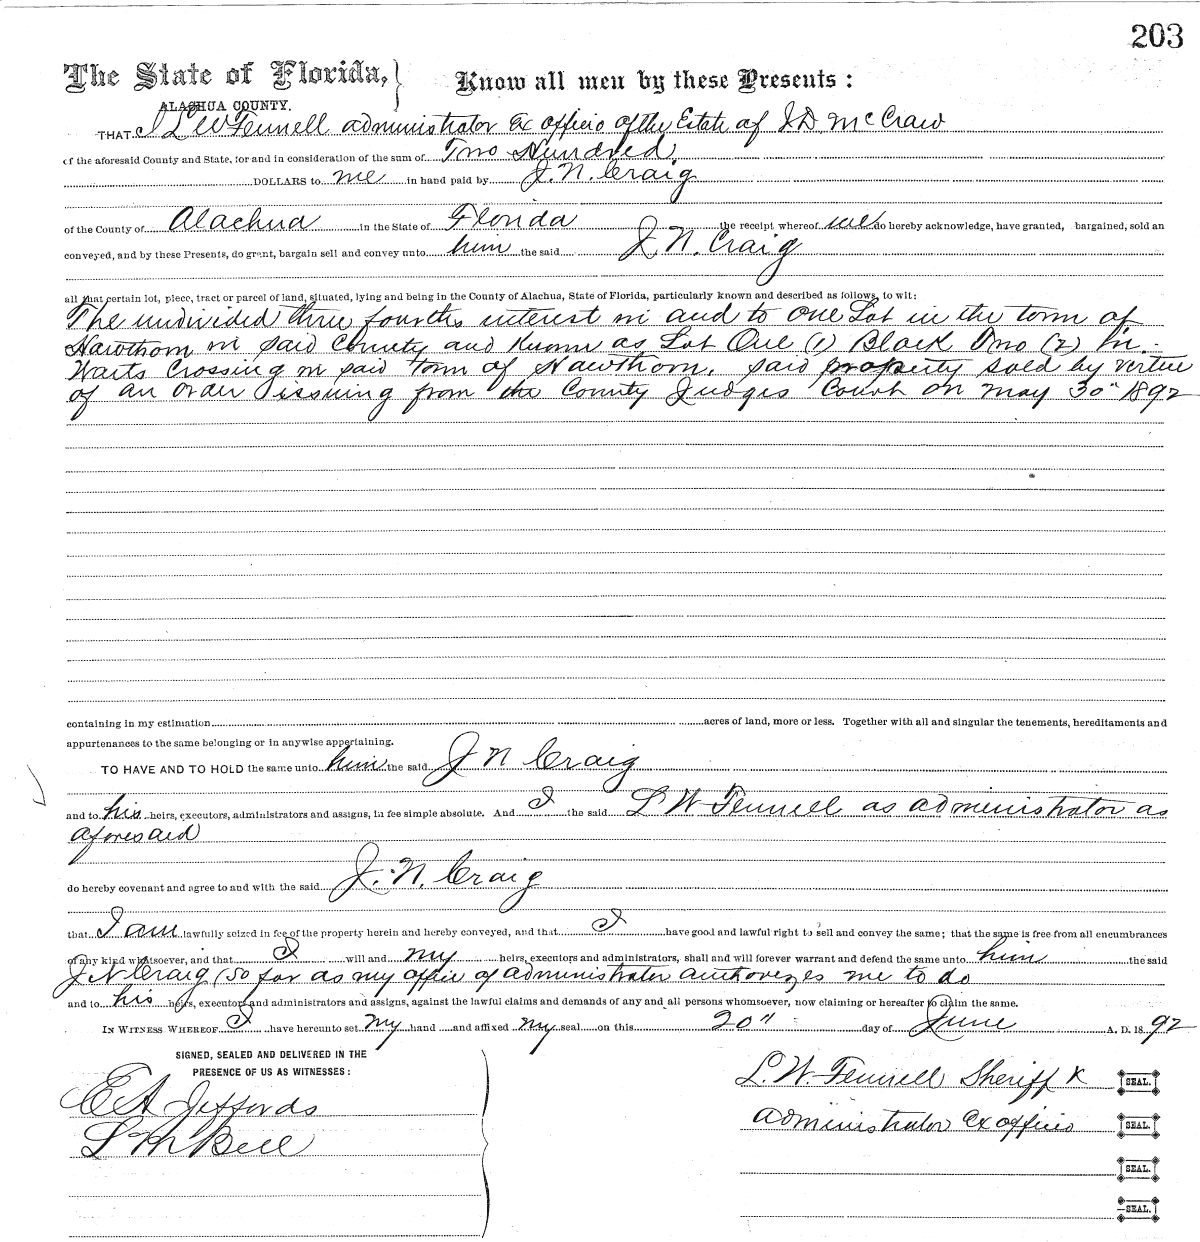 203
The State of Florida, Know all men by these Presents:
ALACHUA COUNTY.
THAT I L W Fennell administrator Ex officio of the Estate of J. D. McCraw
of the aforesaid County and State, for and in consideration of the sum of Two Hundred
DOLLARS to me in hand paid by J. N. Craig
of the County of Alachua in the State of Florida the receipt whereof we do hereby acknowledge, have granted, bargained, sold an
conveyed, and by these Presents, do grant, bargain sell and convey unto him the said J. N. Craig
all that certain lot, piece, tract or parcel of land, situated, lying and being in the County of Alachua, State of Florida, particularly known and described as follows, to wit:
The undivided three fourths interest in and to One Lot in the town of
Hawthorn in said County and known as Lot One (1) Block Two (2) in
Waits Crossing in said town of Hawthorn. said property sold by virtue
of an order issuing from the County Judges Court on May 30" 1892
containing in my estimation acres of land, more or less. Together with all and singular the tenements, hereditaments and
appurtenances to the same belonging or in anywise appertaining.
TO HAVE AND TO HOLD the same unto him the said J N Craig
and to his heirs, executors, administrators and assigns, in fee simple absolute. And I the said L W Fennell as administrator as
aforesaid
do hereby covenant and agree to and with the said J. N. Craig
that I am lawfully seized in fee of the property herein and hereby conveyed, and that I have good and lawful right to sell and convey the same; that the same is free from all encumbrances
of any kind whatsoever, and that I will and my heirs, executors and administrators, shall and will forever warrant and defend the same unto him the said
J N Craig (so far as my office of administrator authorizes me to do
and to his heirs, executors and administrators and assigns, against the lawful claims and demands of any and all persons whomsoever, now claiming or hereafter to claim the same.
IN WITNESS WHEREOF I have hereunto set my hand and affixed my seal on this 20" day of June A. D. 1892
SIGNED, SEALED AND DELIVERED IN THE
PRESENCE OF US AS WITNESSES:
E A Jeffords
L M Bell
L. W. Fennell Sheriff & SEAL.
administrator Ex officio SEAL.
SEAL.
SEAL.